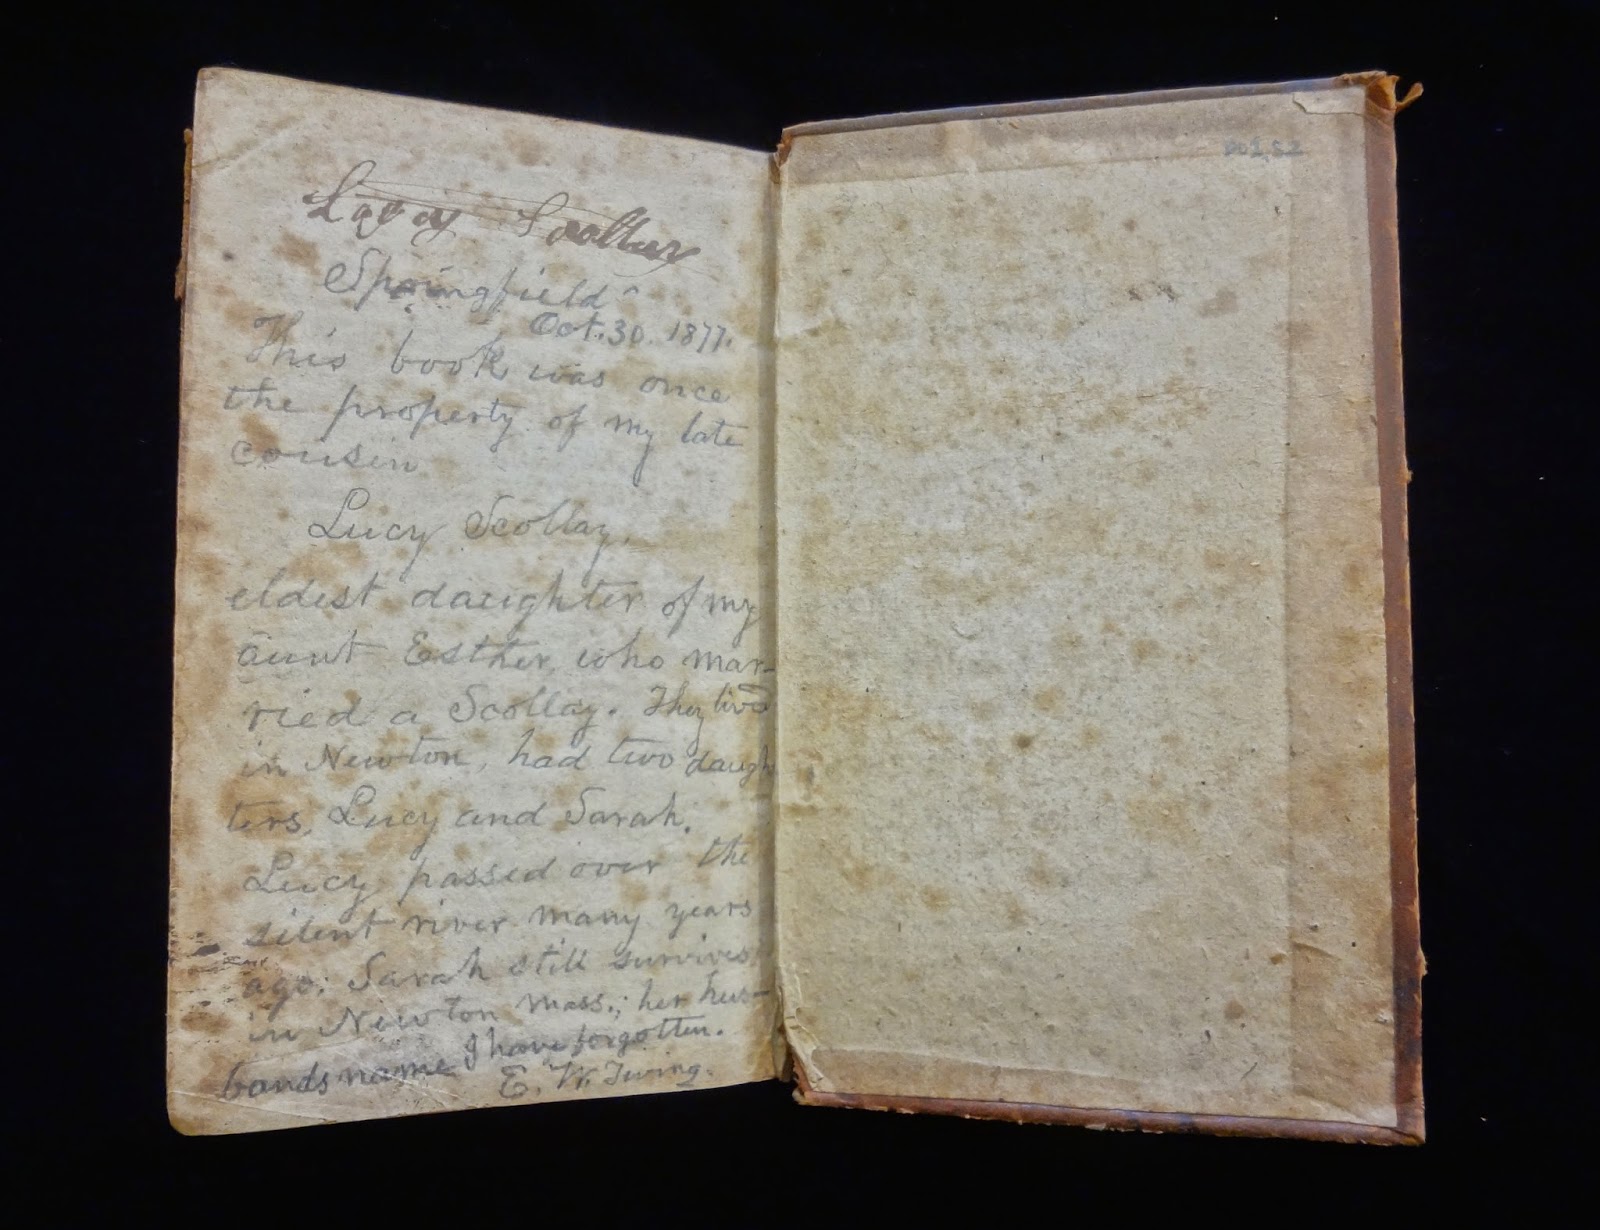 Lucy Scollay
Springfield
Oct. 30. 1877.
This book was once
the property of my late
cousin
Lucy Scollay,
eldest daughter of my
aunt Esther, who mar-
ried a Scollay. They lived
in Newton, had two daugh
ters, Lucy and Sarah.
Lucy passed over the
silent river many years
ago; Sarah still survives
in Newton Mass.; her hus-
bands name I have forgotten.
E. W. Twing.